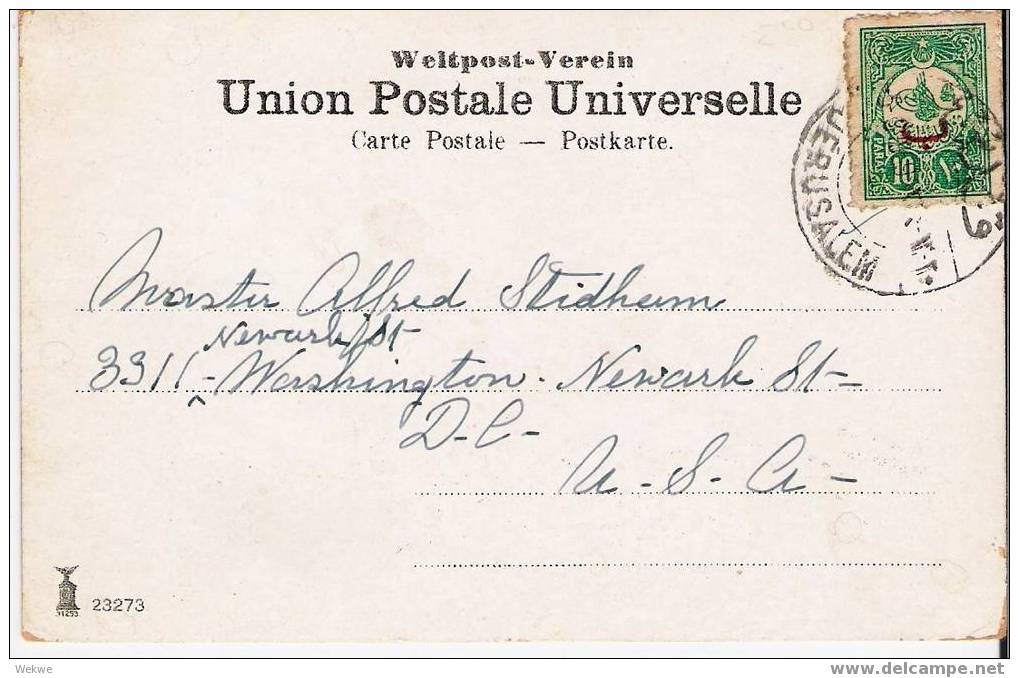 Weltpost-Verein
Union Postale Universelle
Carte Postale — Postkarte.
10
PARAS
JERUSALEM
Master Alfred Stidham
Newark St-
3311-Washington. Newark St-
D.C-
U-S-A-
11253
23273
Wekwe
delcampe.net